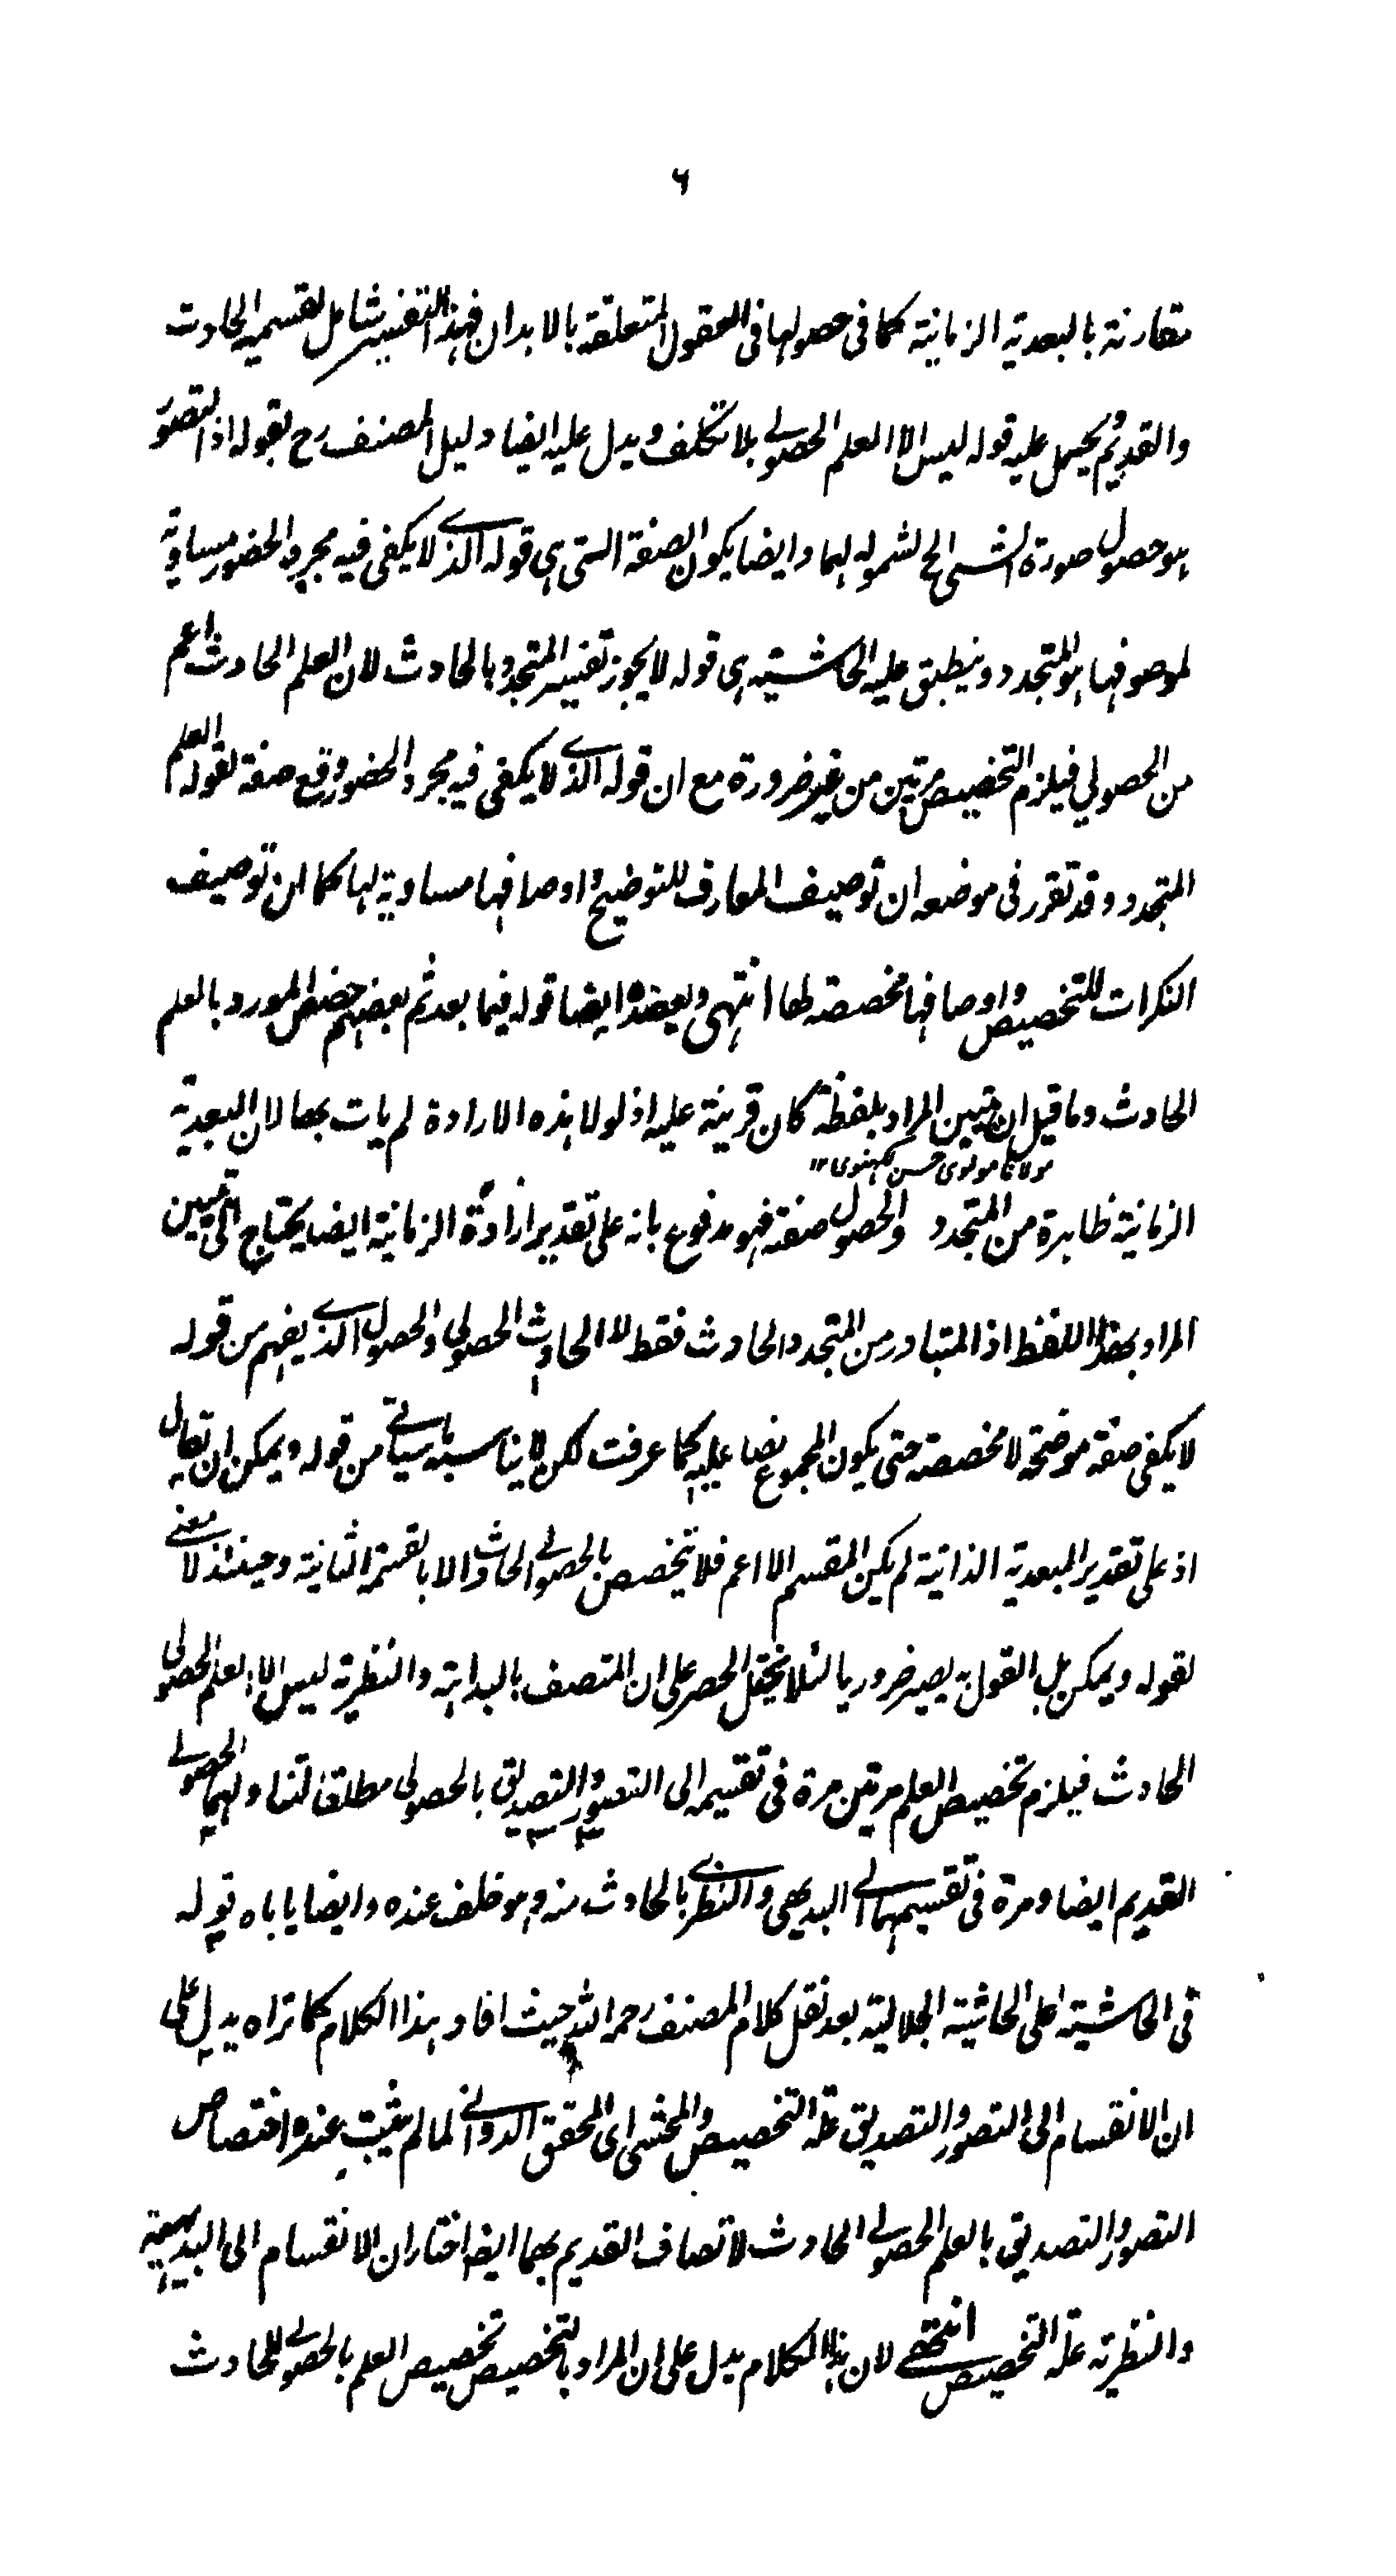 ٦
مقارنة بالبعدية الزمانية كما فى حصولها فى العقول المتعلقة بالابدان فهذا التفسير شامل لقسميه الحادث
والقديم ثم يحمل عليه قوله ليس الا العلم الحصولى بلا تكلف ويدل عليه ايضا دليل المصنف رح بقوله اذ التصور
هو حصول صورة الشىء الخ لشموله لهما وايضا يكون الصفة التى هى قوله الذى لا يكفى فيه مجرد الحضور مساوية
لموصوفها هو المتجدد وينطبق عليه الحاشية هى قوله لا يجوز تفسير المتجدد بالحادث لان العلم الحادث اعم
من الحصولي فيلزم التخصيص مرتين من غير ضرورة مع ان قوله الذى لا يكفى فيه مجرد الحضور وقع صفة لقوله العلم
المتجدد وقد تقرر فى موضعه ان توصيف المعارف للتوضيح واوصافها مساوية لها كما ان توصيف
النكرات للتخصيص واوصافها مخصصة لها انتهى ويعضده ايضا قوله فيما بعد ثم بعضهم خصص المورد بالعلم
الحادث وما قيل ان تبيين المراد بلفظة كان قرينة عليه اذ لولا هذه الارادة لم يات بها لان البعدية
مولانا مولوى حسن لكهنوى ١٢
الزمانية ظاهرة من المتجدد والحصول صفة فهو مدفوع بانه على تقدير ارادة الزمانية ايضا يحتاج الى تبيين
المراد بهذا اللفظ اذ المتبادر من المتجدد الحادث فقط لا الحادث الحصولى والحصول الذى يفهم من قوله
لا يكفى صفة موضحة لا مخصصة حتى يكون المجموع نصا عليه كما عرفت لكن لا يناسبه ما سيأتى من قوله ويمكن ان يقال
اذ على تقدير البعدية الذاتية لم يكن المقسم الا اعم فلا يتخصص بالحصولى الحادث الا بالقسمة الثانية وحينئذ لا معنى
لقوله ويمكن بل القول به يصير ضروريا لئلا يختل الحصر على ان المتصف بالبداهة والنظرية ليس الا العلم الحصولى
الحادث فيلزم تخصيص العلم مرتين مرة فى تقسيمه الى التصور والتصديق بالحصولى مطلقا لتناولهما الحصولى
القديم ايضا ومرة فى تقسيمهما الى البديهى والنظرى بالحادث منه وهو خلف عنده وايضا ياباه قوله
فى الحاشية على الحاشية الجلالية بعد نقل كلام المصنف رحمه الله حيث افاد هذا الكلام كما تراه يدل على
ان الانقسام الى التصور والتصديق علة التخصيص والمحشى اى المحقق الدوانى لما لم يثبت عنده اختصاص
التصور والتصديق بالعلم الحصولى الحادث لاتصاف القديم بهما ايضا اختار ان الانقسام الى البديهية
والنظرية علة التخصيص انتهى لان هذا الكلام يدل على ان المراد بالتخصيص تخصيص العلم بالحصولى الحادث